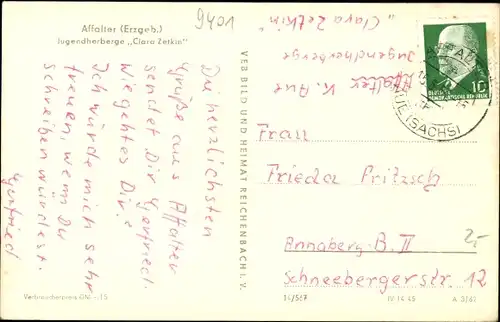 Affalter (Erzgeb.)
Jugendherberge „Clara Zetkin"
9401
Die herzlichsten
Grüße aus Affalter
sendet Dir Gerfried.
Wie geht es Dir?
Ich würde mich sehr
freuen, wenn Du
schreiben würdest.
Gerfried
VEB BILD UND HEIMAT REICHENBACH I. V.
„Clara Zetkin"
Jugendherberge
Affalter K. Aue
AUE (SACHS)
10
Frau
Frieda Fritzsch
Annaberg-B. II
Schneebergerstr. 12
2,-
Verbraucherpreis DM –,15
IV 14 45